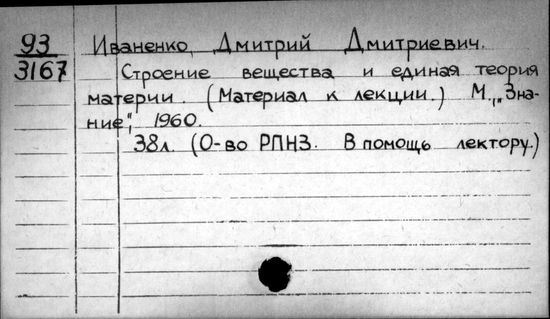 93 Иваненко, Дмитрий Дмитриевич.
3167 Строение вещества и единая теория
материи. (Материал к лекции.) М., „Зна-
ние“, 1960.
38л. (О-во РПНЗ. В помощь лектору.)